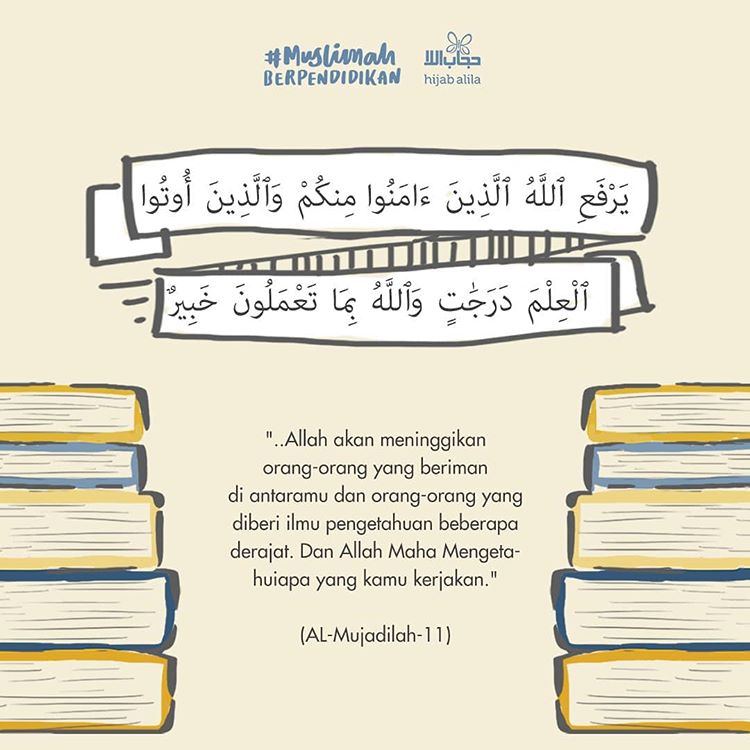 #Muslimah
BERPENDIDIKAN
حجاب اللا
hijab alila
يَرْفَعِ ٱللَّهُ ٱلَّذِينَ ءَامَنُوا مِنكُمْ وَٱلَّذِينَ أُوتُوا
ٱلْعِلْمَ دَرَجَٰتٍ وَٱللَّهُ بِمَا تَعْمَلُونَ خَبِيرٌ
"..Allah akan meninggikan
orang-orang yang beriman
di antaramu dan orang-orang yang
diberi ilmu pengetahuan beberapa
derajat. Dan Allah Maha Mengeta-
huiapa yang kamu kerjakan."
(AL-Mujadilah-11)